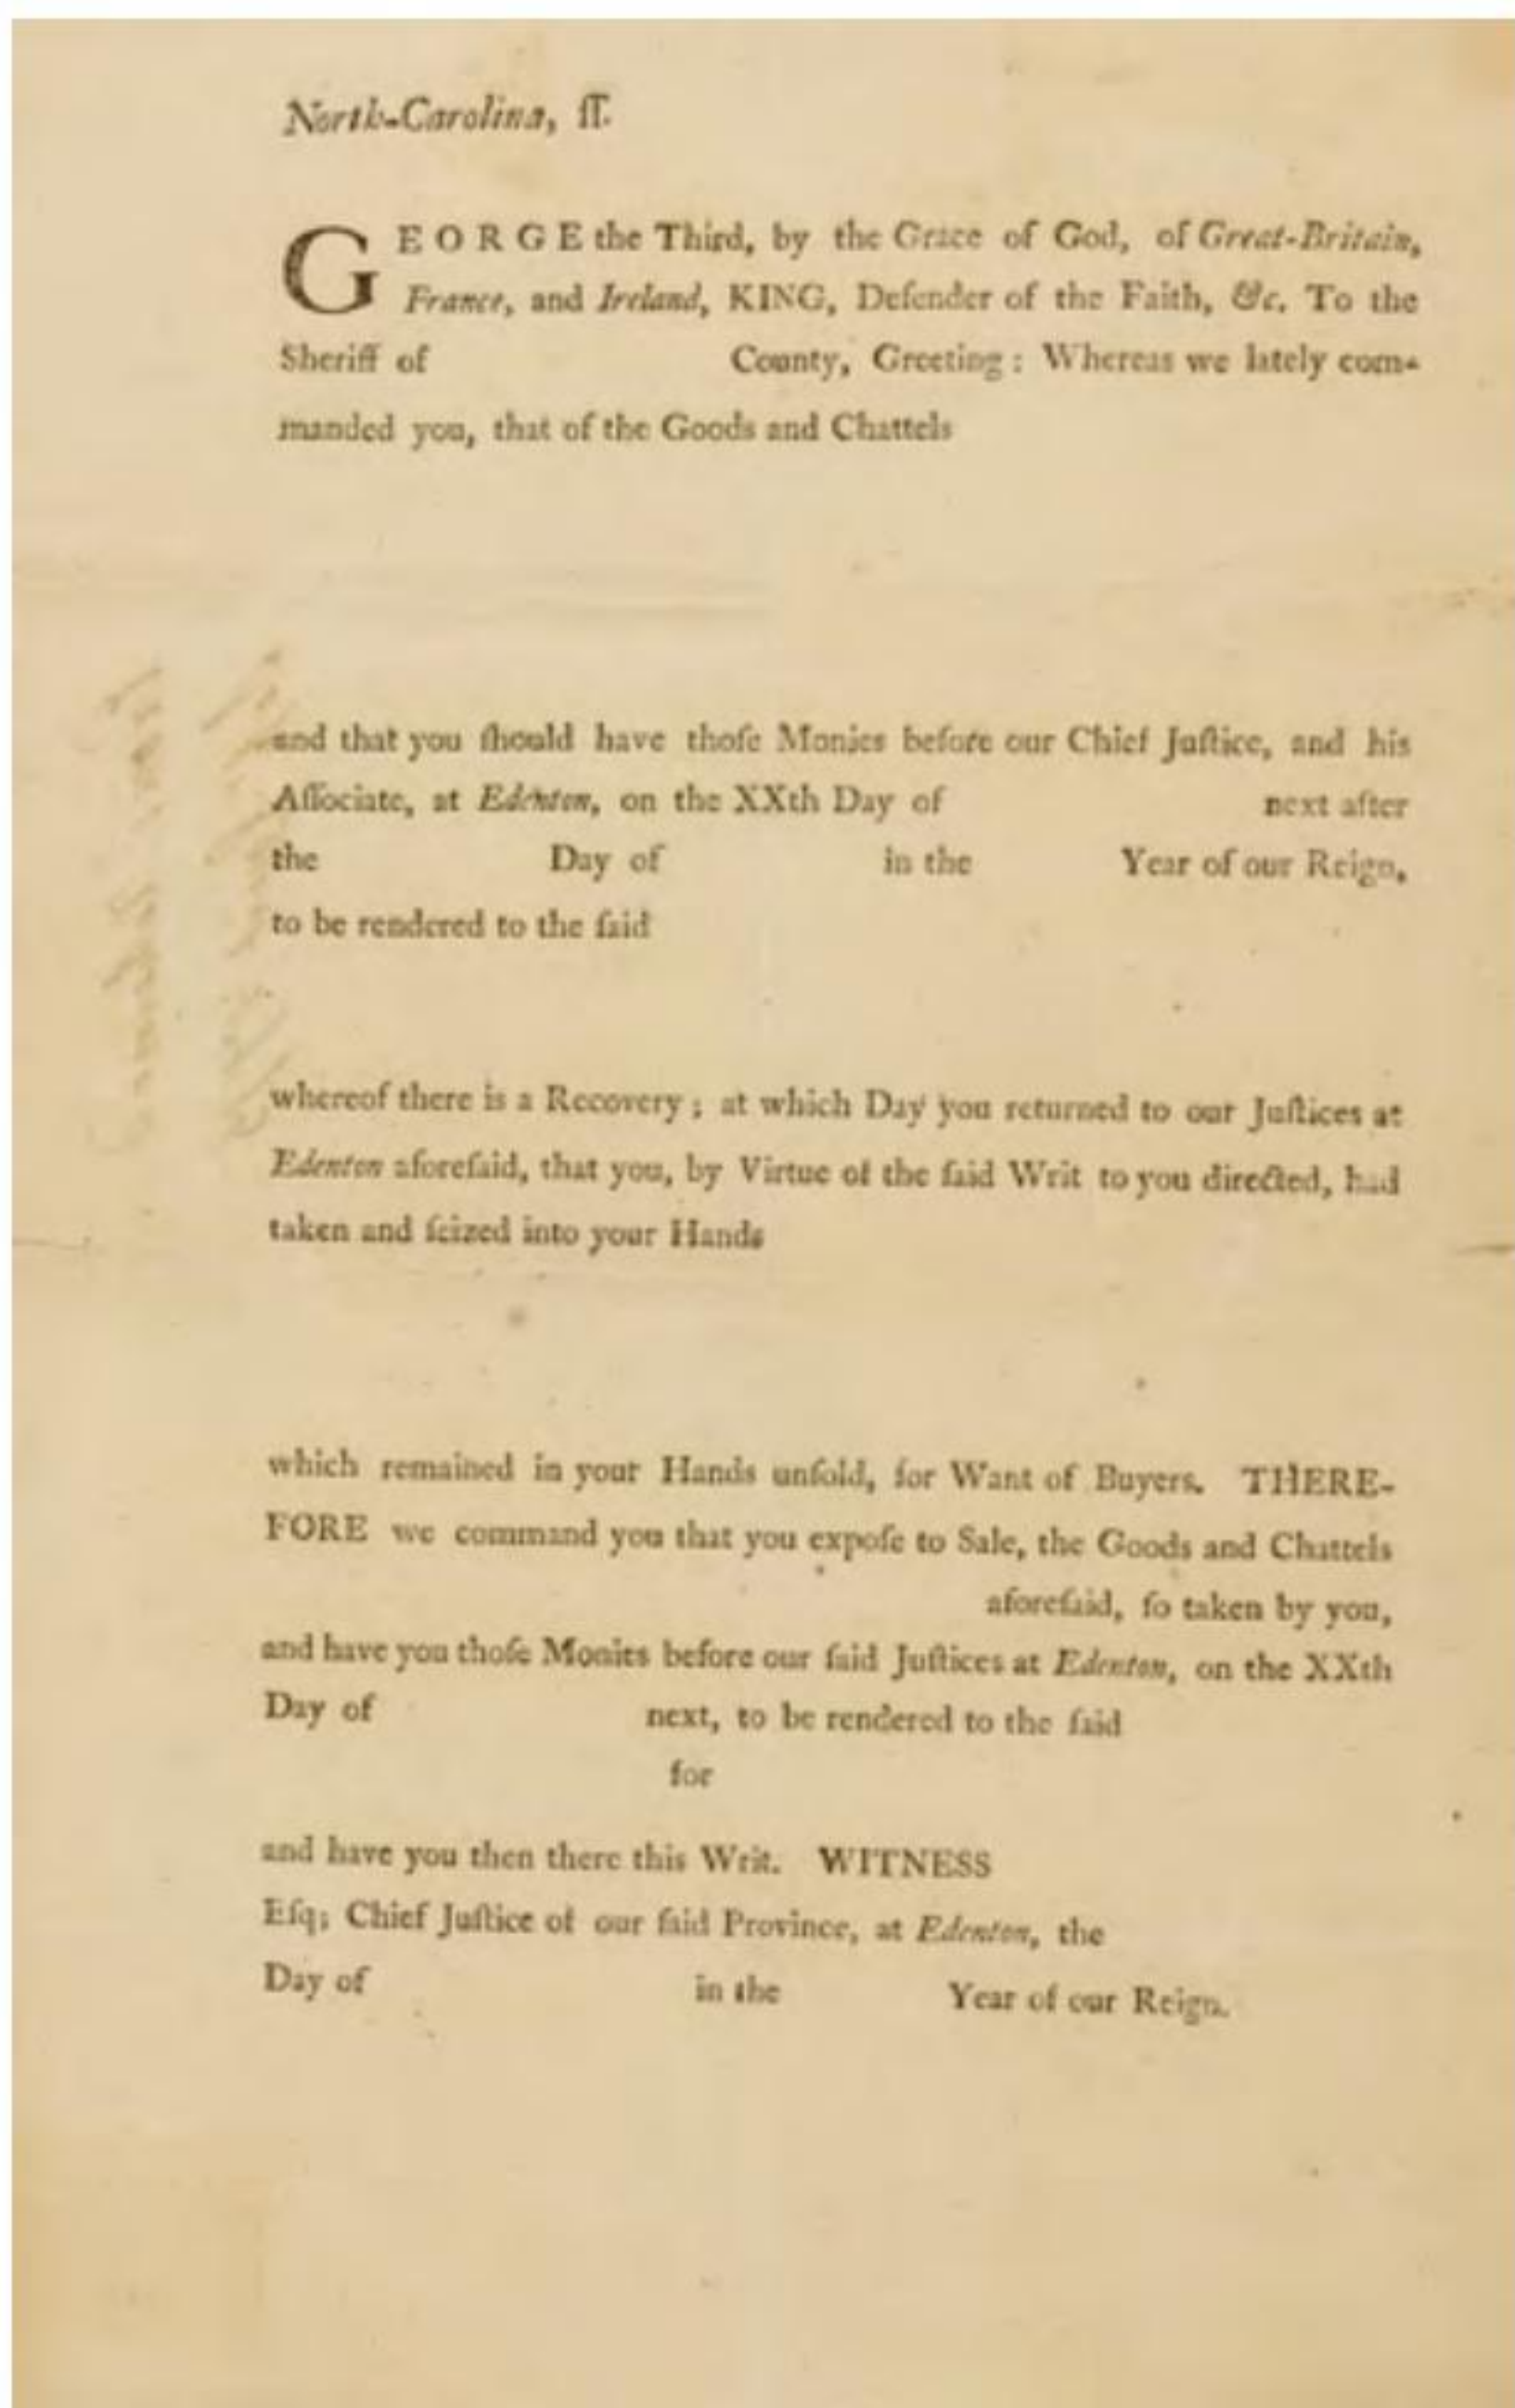 North-Carolina, ſſ.
GEORGE the Third, by the Grace of God, of Great-Britain,
France, and Ireland, KING, Defender of the Faith, &c. To the
Sheriff of County, Greeting: Whereas we lately com-
manded you, that of the Goods and Chattels
and that you ſhould have thoſe Monies before our Chief Juſtice, and his
Aſſociate, at Edenton, on the XXth Day of next after
the Day of in the Year of our Reign,
to be rendered to the ſaid
whereof there is a Recovery; at which Day you returned to our Juſtices at
Edenton aforeſaid, that you, by Virtue of the ſaid Writ to you directed, had
taken and ſeized into your Hands
which remained in your Hands unſold, for Want of Buyers. THERE-
FORE we command you that you expoſe to Sale, the Goods and Chattels
aforeſaid, ſo taken by you,
and have you thoſe Monies before our ſaid Juſtices at Edenton, on the XXth
Day of next, to be rendered to the ſaid
for
and have you then there this Writ. WITNESS
Eſq; Chief Juſtice of our ſaid Province, at Edenton, the
Day of in the Year of our Reign.